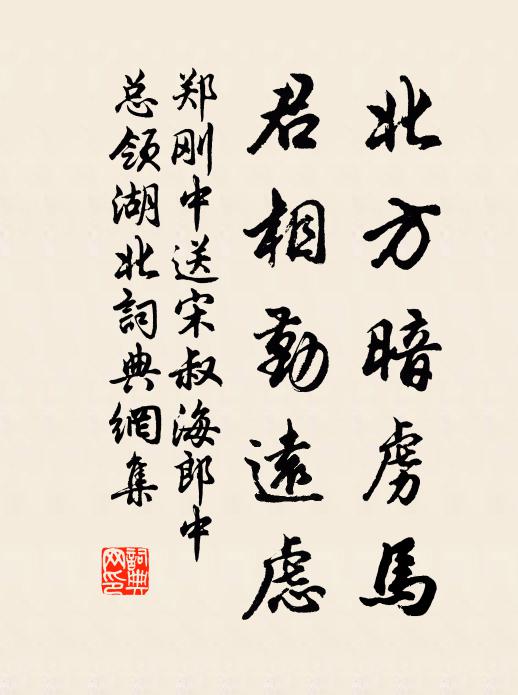 北方暗虜馬
君相勤遠慮
郑刚中送宋叔海郎中
总领湖北詞典網集
詞典
网印